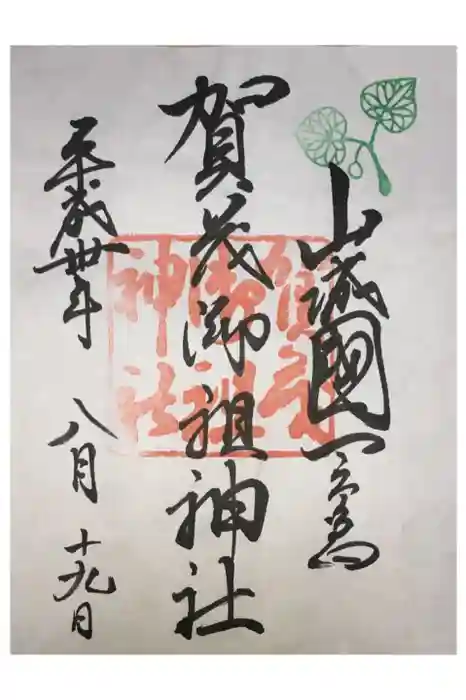 山城國一之宮
賀茂御祖神社
平成卅年
八月十九日
賀茂
御祖
神社